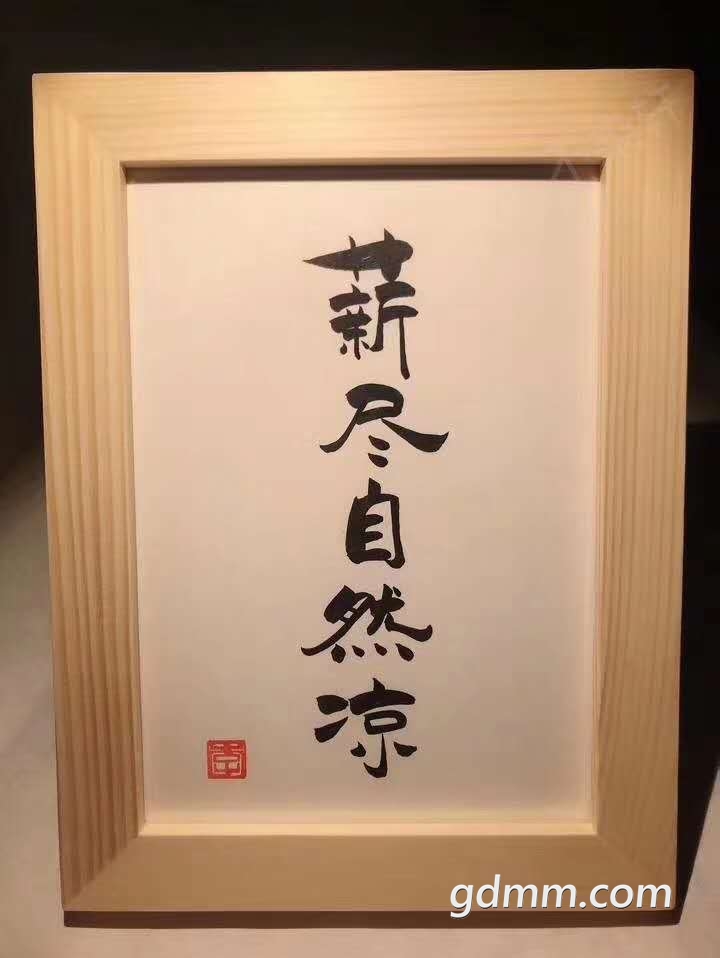 薪尽自然凉
gdmm.com